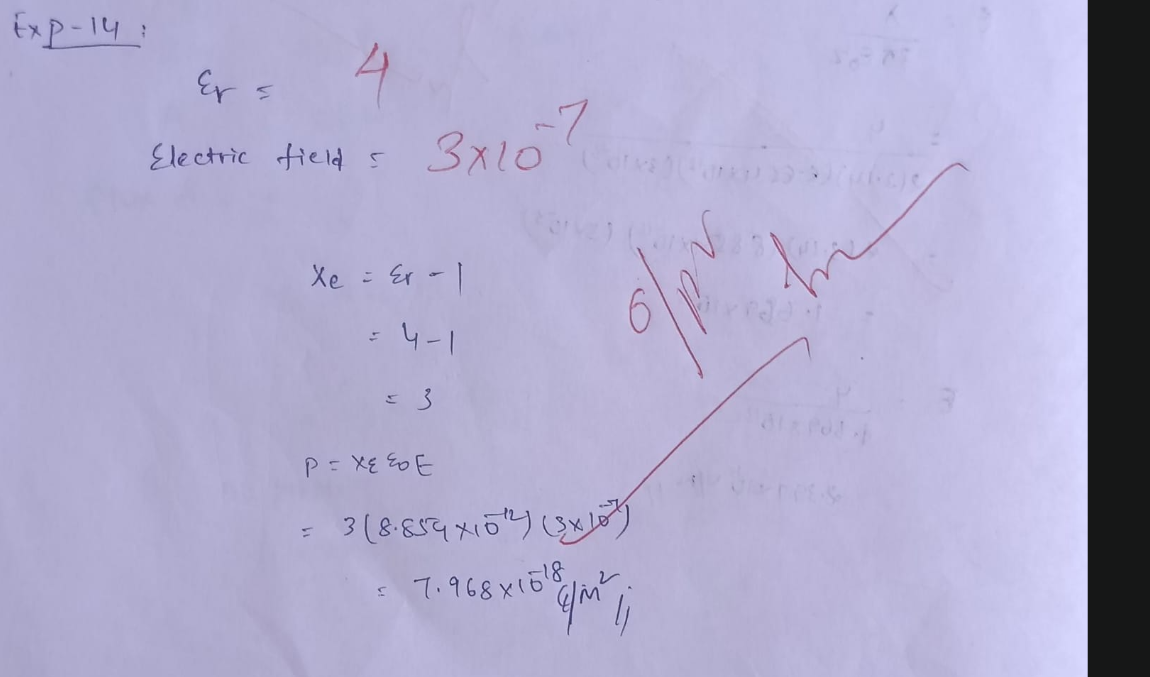 Exp-14:
εr = 4
Electric field = 3×10⁻⁷
χe = εr - 1
= 4-1
= 3
P = χε ε0 E
= 3(8.854×10⁻¹²)(3×10⁻⁷)
= 7.968×10⁻¹⁸ C/m²//